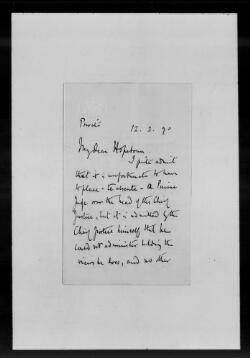 Private
12. 2. 90
My dear Hopetoun
I quite admit
that it is unfortunate to have
to place - in absentia - a Puisne
Judge over the head of the Chief
Justice, but it is admitted by the
Chief Justice himself that he
could not administer holding the
views he does, and no other